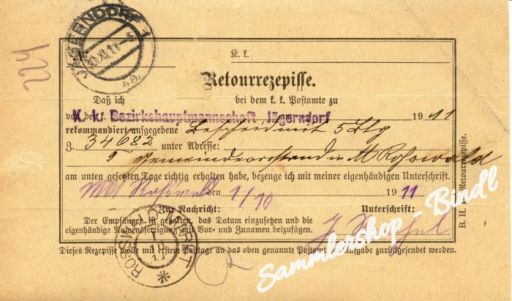 JÄGERNDORF 1
224
K. k.
Retourrezepisse.
Daß ich
bei dem k. k. Postamte zu
von der
K. k. Bezirkshauptmannschaft Jägerndorf
1911
rekommandiert aufgegebene Bescheid mit 5 Blg
Z. 34682 unter Adresse:
Gemeindevorstand in M Roßwald
am unten gesetzten Tage richtig erhalten habe, bezeuge ich mit meiner eigenhändigen Unterschrift.
Roßwald den 1/10 1911
Zur Nachricht:
Unterschrift:
Der Empfänger ist gehalten, das Datum einzusetzen und die
eigenhändige Namensfertigung mit Vor- und Zunamen beizufügen.
Dieses Rezepisse wolle mit erstem Posttage an das oben genannte Postamt zur Ausgabe zurückgesendet werden.
B. H. Retourrezepisse.
Sammlershop - Bindl